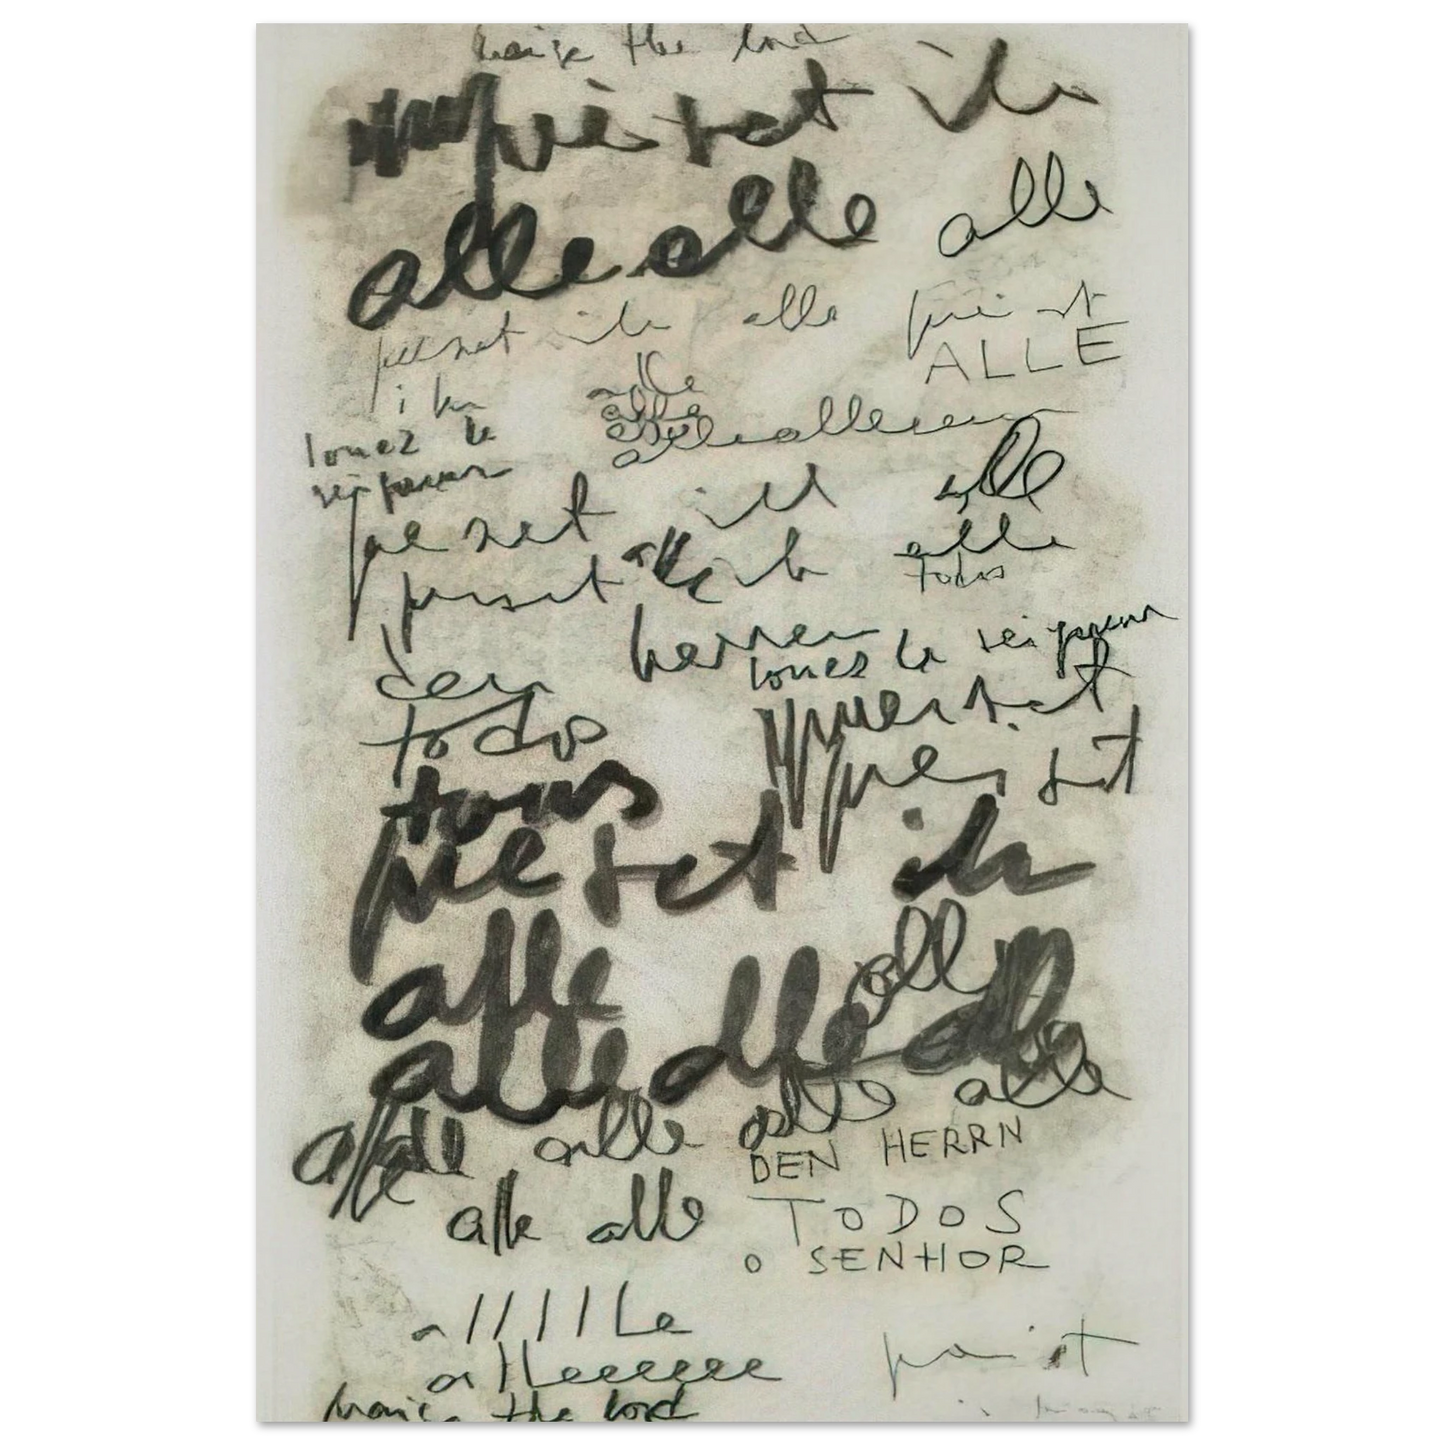 praise the lord
preiset ihn
alle alle alle
preiset ihn alle preist
ALLE
ihn
alle
alle
louez le
alle
alle alle
seigneur
preiset ihn alle
preiset alle ihn alle
todos
herren
louez le seigneur
den
preiset
todos
preiset
tous
preiset ihn
alle
alle
alle alle alle
alle alle alle alle
DEN HERRN
alle alle
TODOS
O SENHOR
allllle
alleeeeeee
preist
praise the lord